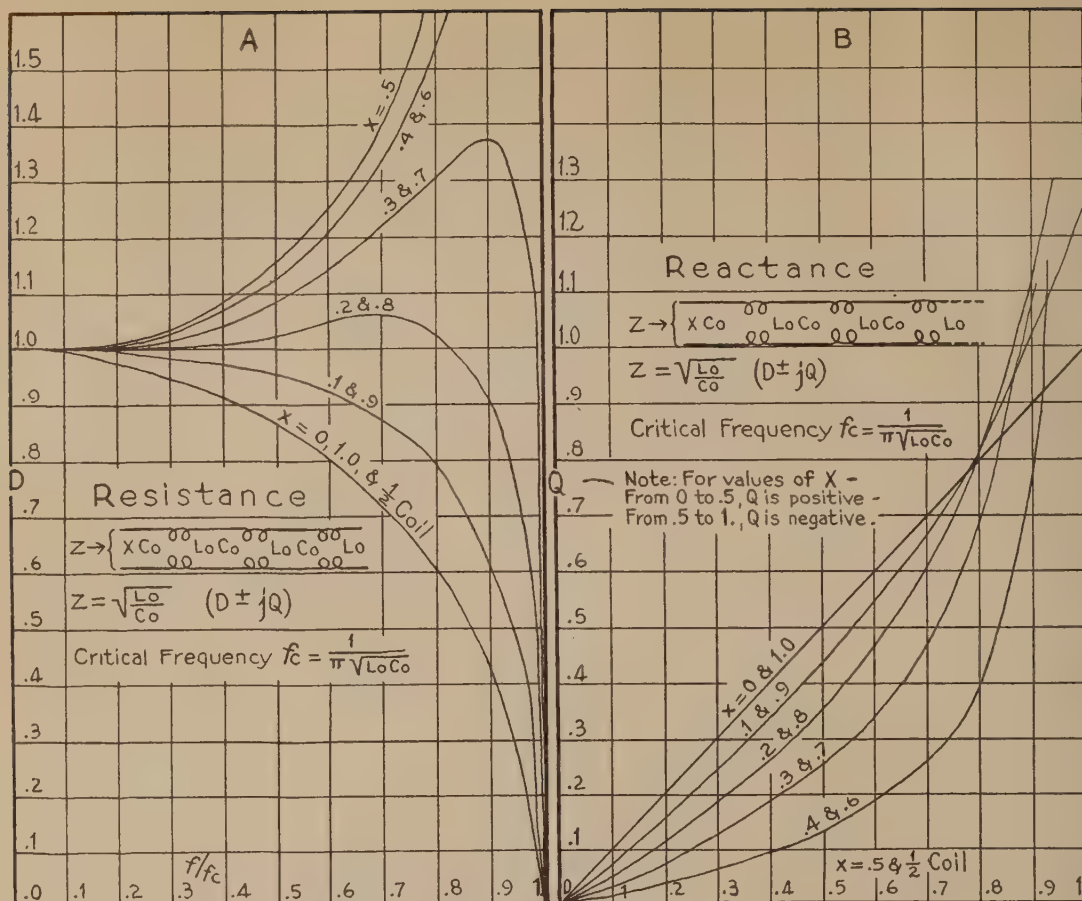 A
1.5
1.4
1.3
1.2
1.1
1.0
.9
.8
D
.7
.6
.5
.4
.3
.2
.1
.0
x = .5
.4 & .6
.3 & .7
.2 & .8
.1 & .9
x = 0, 1.0, & 1/2 Coil
Resistance
Z → { X Co Lo Co Lo Co Lo
Z = √Lo/Co (D ± jQ)
Critical Frequency fc = 1/π√LoCo
f/fc
.1 .2 .3 .4 .5 .6 .7 .8 .9 1.
B
1.5
1.4
1.3
1.2
1.1
1.0
.9
.8
Q
.7
.6
.5
.4
.3
.2
.1
0
Reactance
Z → { X Co Lo Co Lo Co Lo
Z = √Lo/Co (D ± jQ)
Critical Frequency fc = 1/π√LoCo
Note: For values of X -
From 0 to .5, Q is positive -
From .5 to 1., Q is negative.
x = 0 & 1.0
.1 & .9
.2 & .8
.3 & .7
.4 & .6
x = .5 & 1/2 Coil
.1 .2 .3 .4 .5 .6 .7 .8 .9 1.